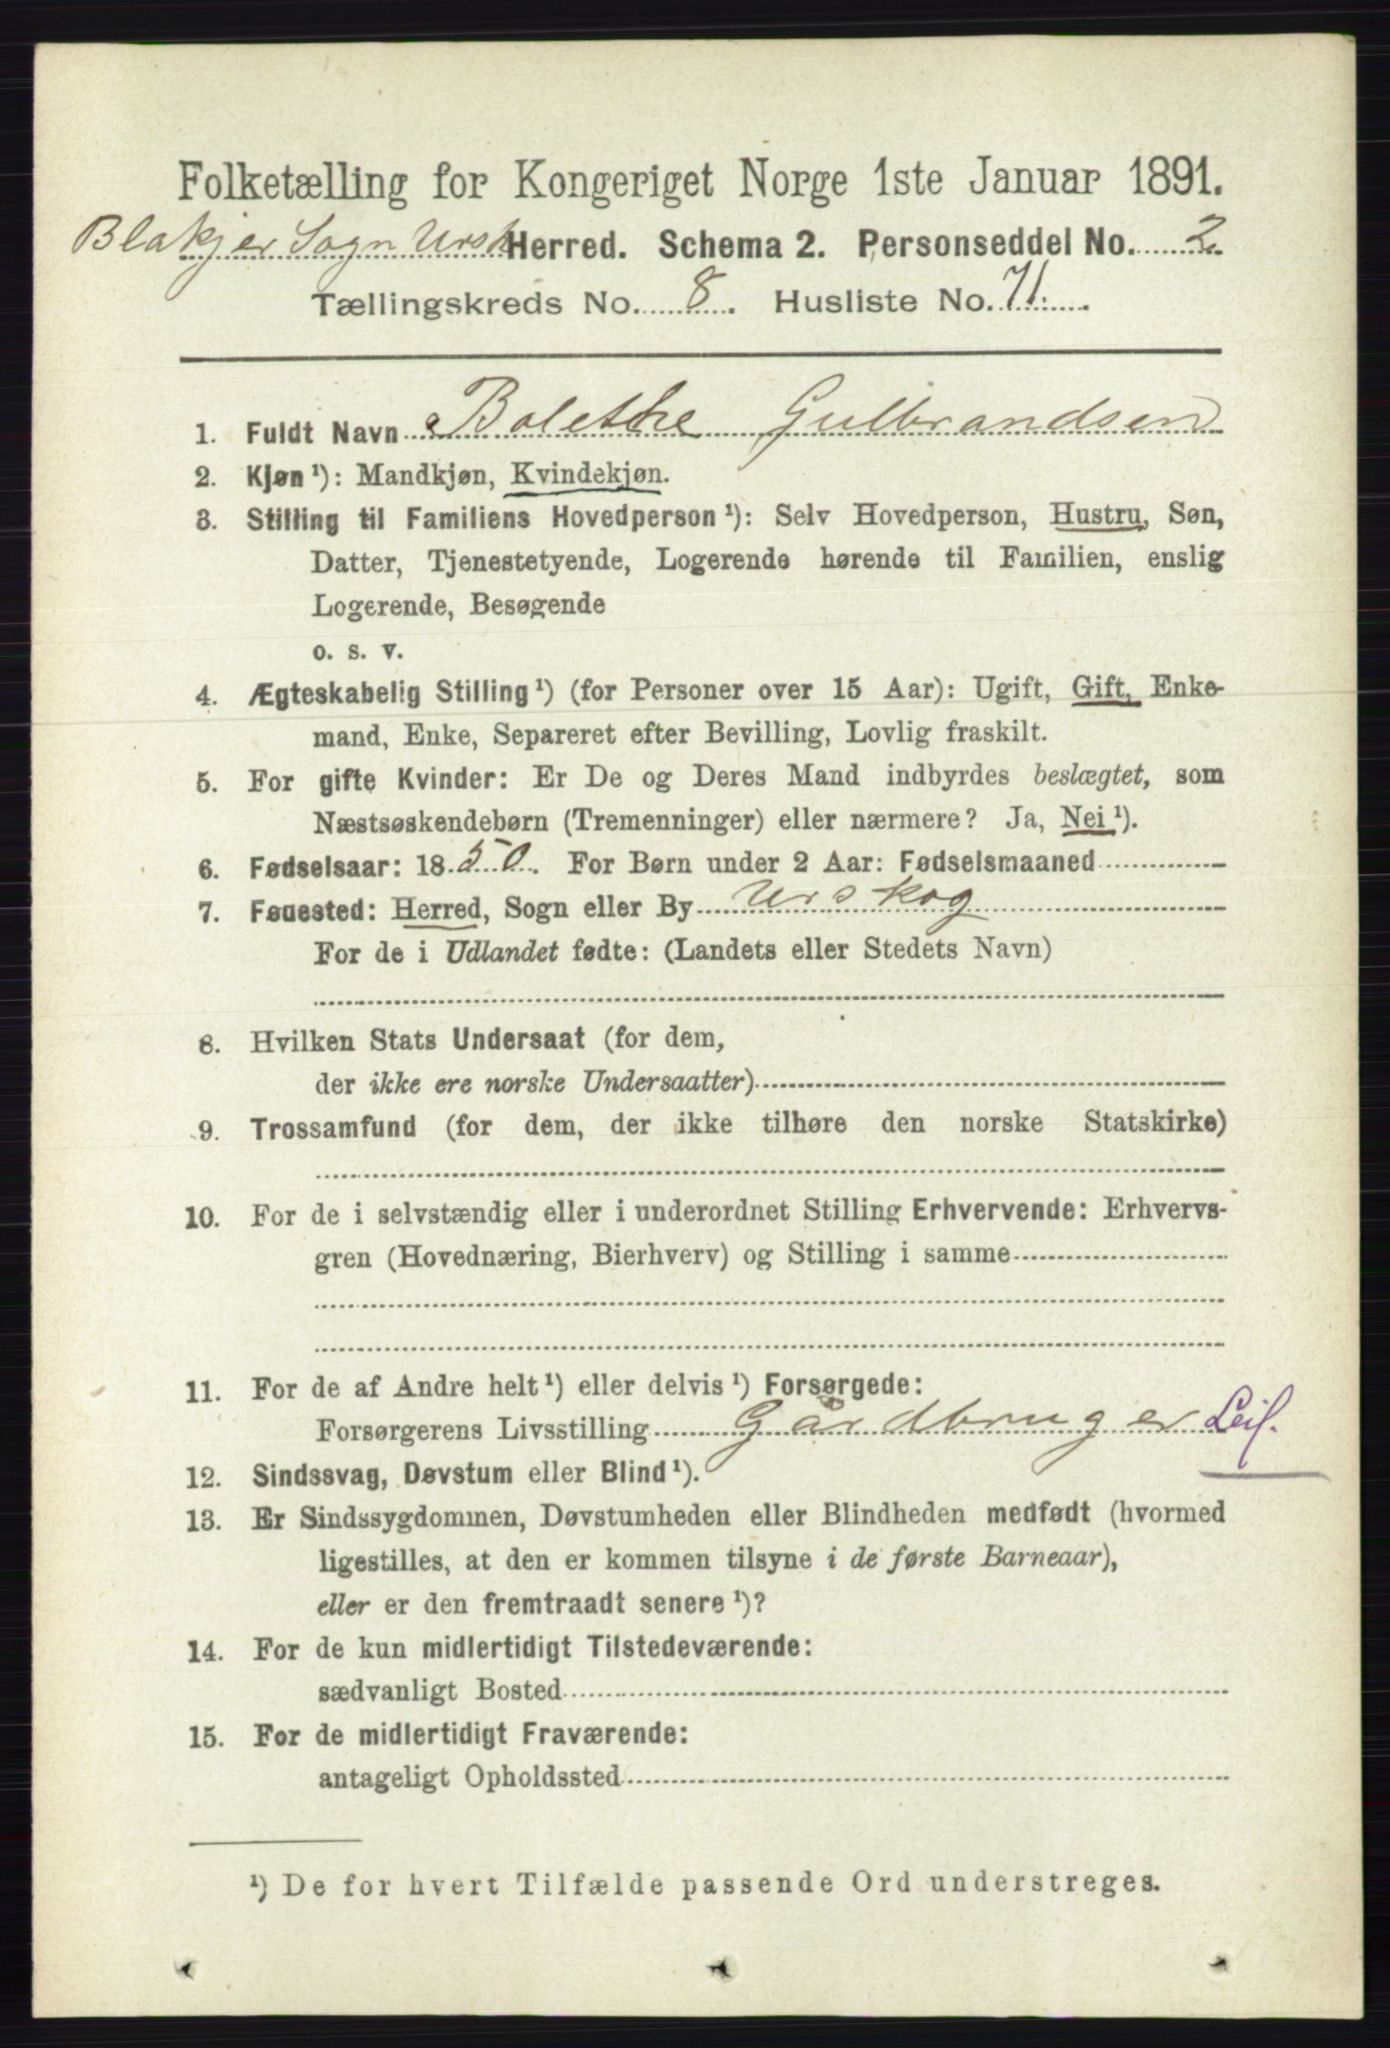 Folketælling for Kongeriget Norge 1ste Januar 1891.
Blakjer Sogn Ursk Herred. Schema 2. Personseddel No. 2
Tællingskreds No. 8. Husliste No. 71.
1. Fuldt Navn Bolethe Gulbrandsen
2. Kjøn ¹): Mandkjøn, Kvindekjøn.
3. Stilling til Familiens Hovedperson ¹): Selv Hovedperson, Hustru, Søn,
Datter, Tjenestetyende, Logerende hørende til Familien, enslig
Logerende, Besøgende
o. s. v.
4. Ægteskabelig Stilling ¹) (for Personer over 15 Aar): Ugift, Gift, Enke-
mand, Enke, Separeret efter Bevilling, Lovlig fraskilt.
5. For gifte Kvinder: Er De og Deres Mand indbyrdes beslægtet, som
Næstsøskendebørn (Tremenninger) eller nærmere? Ja, Nei ¹).
6. Fødselsaar: 1850. For Børn under 2 Aar: Fødselsmaaned
7. Fødested: Herred, Sogn eller By Urskog
For de i Udlandet fødte: (Landets eller Stedets Navn)
8. Hvilken Stats Undersaat (for dem,
der ikke ere norske Undersaatter)
9. Trossamfund (for dem, der ikke tilhøre den norske Statskirke)
10. For de i selvstændig eller i underordnet Stilling Erhvervende: Erhvervs-
gren (Hovednæring, Bierhverv) og Stilling i samme
11. For de af Andre helt ¹) eller delvis ¹) Forsørgede:
Forsørgerens Livsstilling Gårdbruger Leil.
12. Sindssvag, Døvstum eller Blind ¹).
13. Er Sindssygdommen, Døvstumheden eller Blindheden medfødt (hvormed
ligestilles, at den er kommen tilsyne i de første Barneaar),
eller er den fremtraadt senere ¹)?
14. For de kun midlertidigt Tilstedeværende:
sædvanligt Bosted
15. For de midlertidigt Fraværende:
antageligt Opholdssted
¹) De for hvert Tilfælde passende Ord understreges.